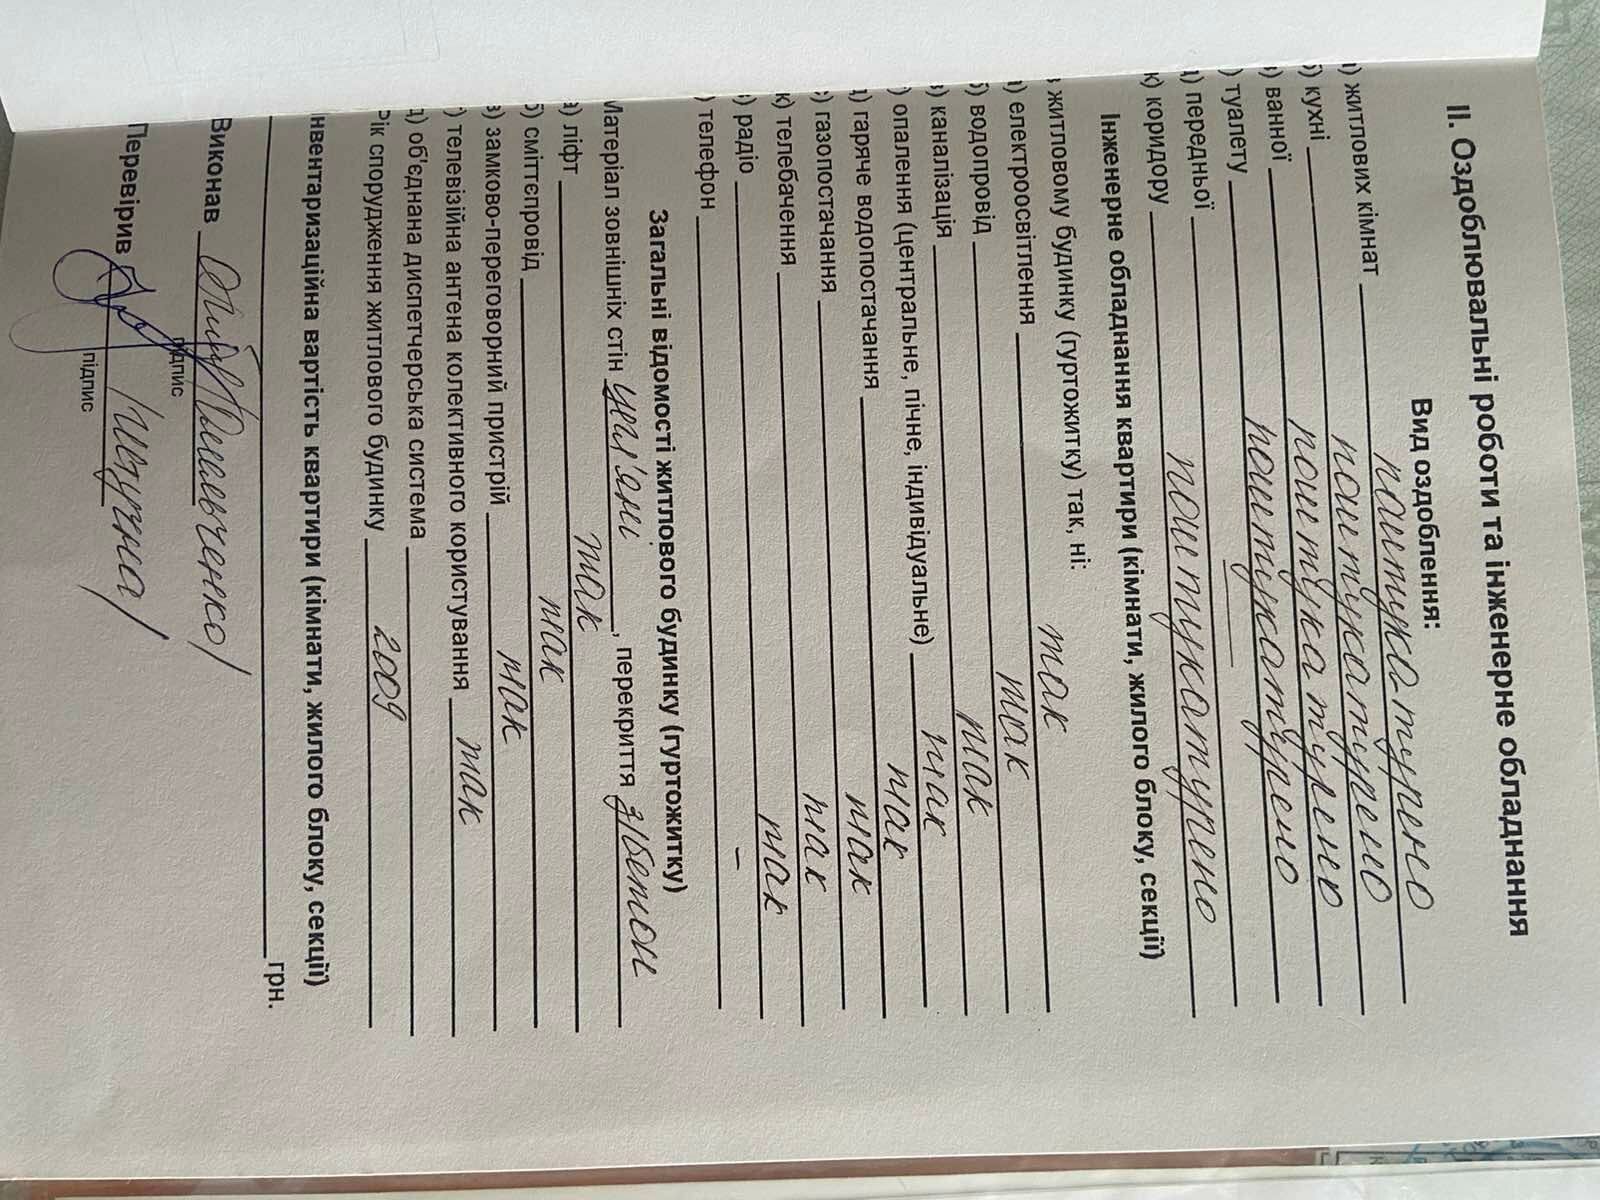 II. Оздоблювальні роботи та інженерне обладнання
Вид оздоблення:
) житлових кімнат поштукатурено
б) кухні поштукатурено
в) ванної поштукатурено
) туалету поштукатурено
д) передньої —
к) коридору поштукатурено
Інженерне обладнання квартири (кімнати, жилого блоку, секції)
в житловому будинку (гуртожитку) так, ні:
а) електроосвітлення так
б) водопровід так
в) каналізація так
) опалення (центральне, пічне, індивідуальне) так
д) гаряче водопостачання так
є) газопостачання так
к) телебачення так
) радіо так
) телефон –
Загальні відомості житлового будинку (гуртожитку)
Матеріал зовнішніх стін цегл'яні, перекриття з/бетон
а) ліфт так
б) сміттєпровід так
в) замково-переговорний пристрій так
г) телевізійна антена колективного користування так
д) об'єднана диспетчерська система
Рік спорудження житлового будинку 2009
нвентаризаційна вартість квартири (кімнати, жилого блоку, секції)
грн.
Виконав /Шевченко/
підпис
Перевірив
підпис